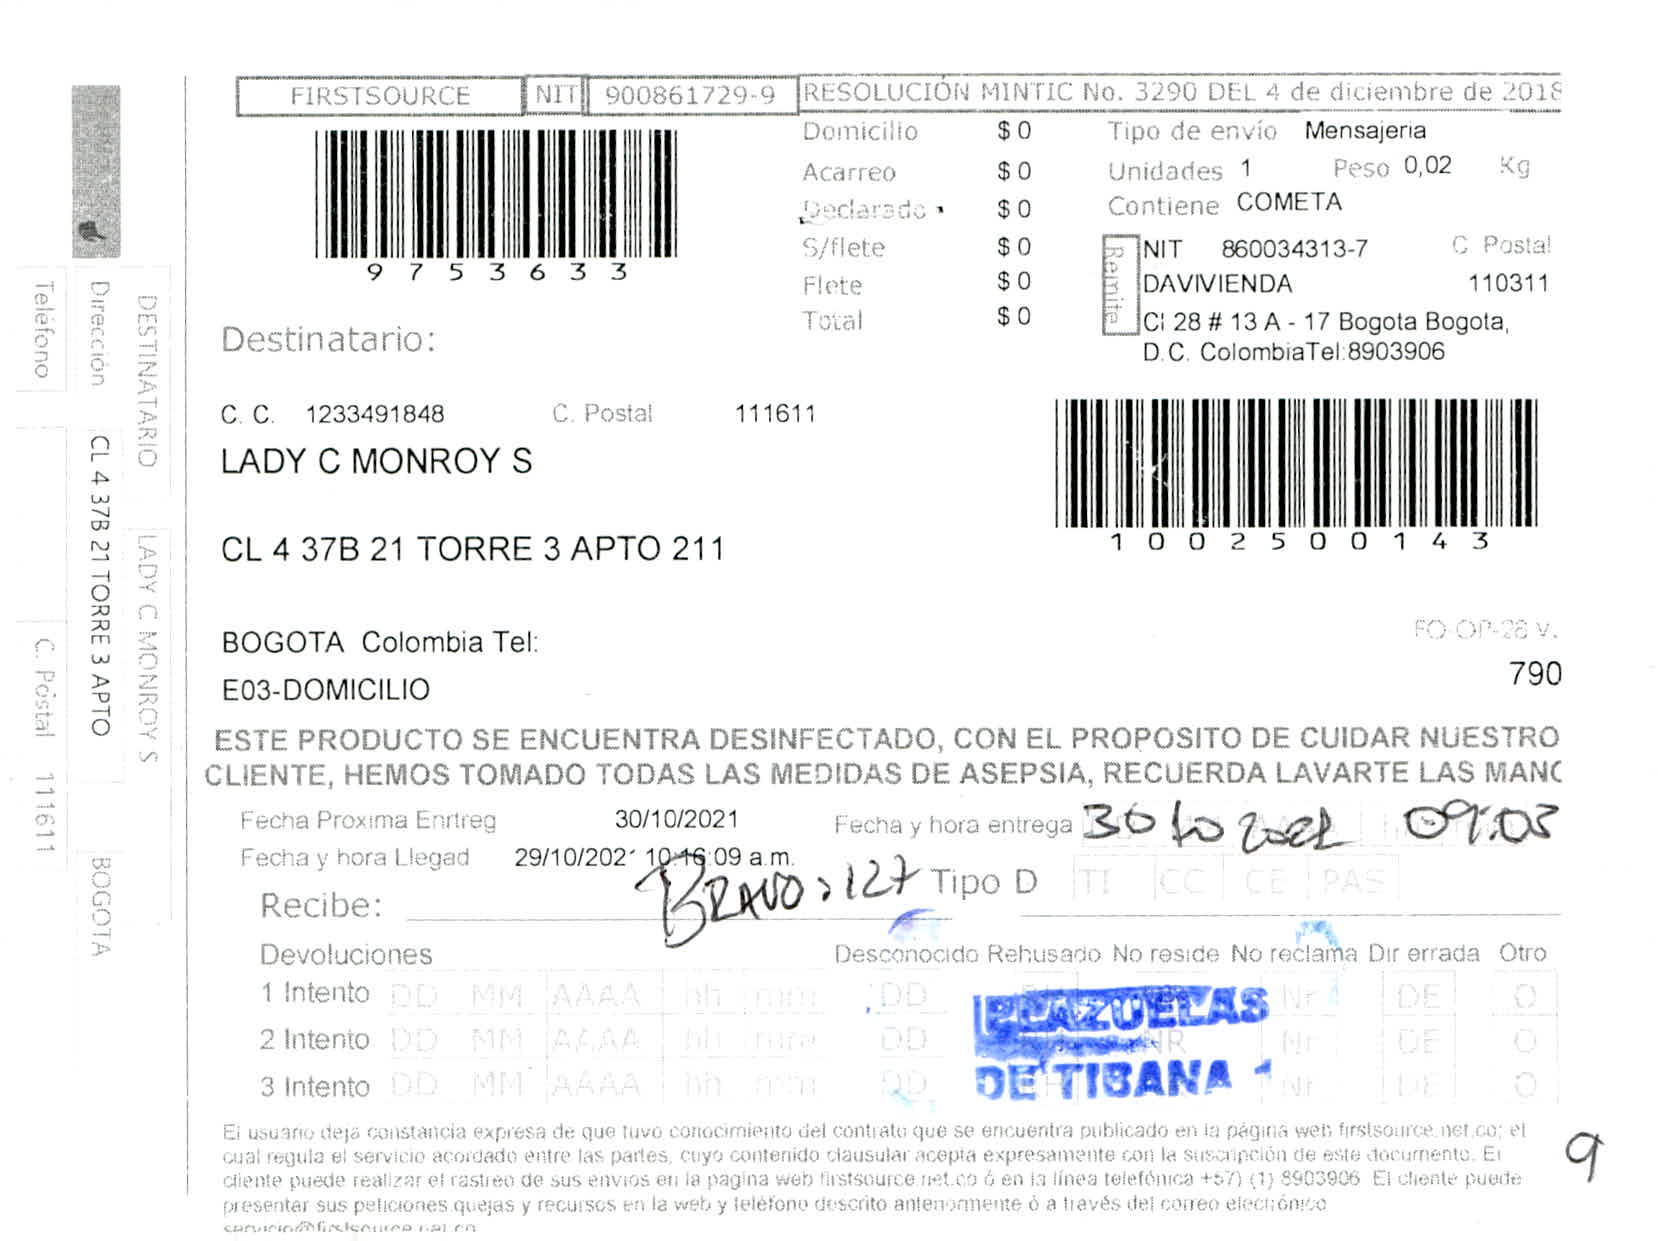 FIRSTSOURCE NIT 900861729-9 RESOLUCIÓN MINTIC No. 3290 DEL 4 de diciembre de 2018
97533633
Domicilio $ 0
Acarreo $ 0
Declarado $ 0
S/flete $ 0
Flete $ 0
Total $ 0
Tipo de envío Mensajeria
Unidades 1 Peso 0,02 Kg
Contiene COMETA
Remite
NIT 860034313-7 C Postal
DAVIVIENDA 110311
Cl 28 # 13 A - 17 Bogota Bogota,
D.C. ColombiaTel:8903906
Destinatario:
C. C. 1233491848 C. Postal 111611
LADY C MONROY S
CL 4 37B 21 TORRE 3 APTO 211
10025000143
BOGOTA Colombia Tel:
E03-DOMICILIO
FO-OP-28 V.
790
ESTE PRODUCTO SE ENCUENTRA DESINFECTADO, CON EL PROPOSITO DE CUIDAR NUESTRO
CLIENTE, HEMOS TOMADO TODAS LAS MEDIDAS DE ASEPSIA, RECUERDA LAVARTE LAS MANO
Fecha Proxima Enrtreg 30/10/2021 Fecha y hora entrega 30 10 2021 09:03
Fecha y hora Llegad 29/10/2021 10:16:09 a.m.
Recibe: BRAVO 127 Tipo D TI CC CE PAS
Devoluciones Desconocido Rehusado No reside No reclama Dir errada Otro
1 Intento DD MM AAAA hh mm DD Nr DE O
2 Intento DD MM AAAA hh mm DD NR Nr DE O
3 Intento DD MM AAAA hh mm DD Nr DE O
PLAZUELAS
DE TIBANA 1
El usuario deja constancia expresa de que tuvo conocimiento del contrato que se encuentra publicado en la página web firstsource.net.co; el
cual regula el servicio acordado entre las partes, cuyo contenido clausular acepta expresamente con la suscripción de este documento. El
cliente puede realizar el rastreo de sus envios en la pagina web firstsource.net.co ó en la línea telefónica +57) (1) 8903906 El cliente puede
presentar sus peticiones quejas y recursos en la web y teléfono descrito anteriormente ó a través del correo electrónico
servicio@firstsource.net.co
9
DESTINATARIO LADY C MONROY S
Dirección CL 4 37B 21 TORRE 3 APTO BOGOTA
Teléfono C. Postal 111611